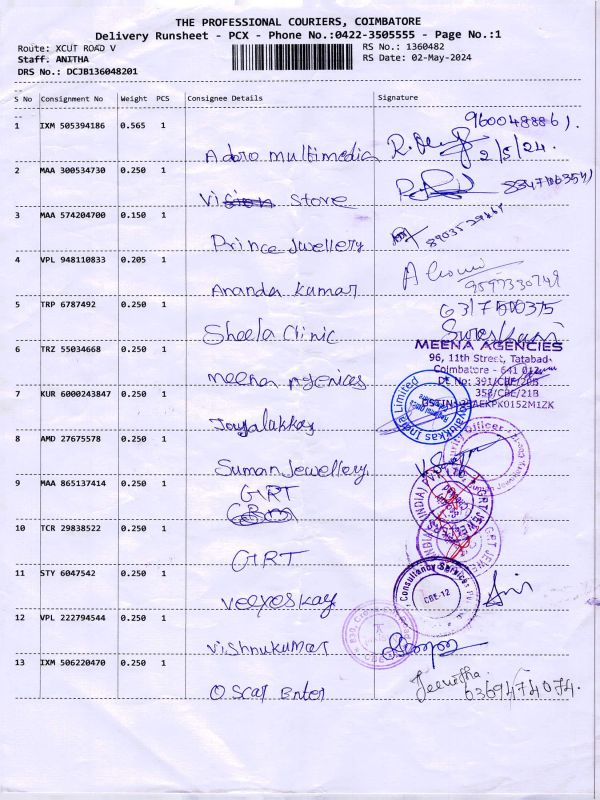 THE PROFESSIONAL COURIERS, COIMBATORE
Delivery Runsheet - PCX - Phone No.:0422-3505555 - Page No.:1
Route: XCUT ROAD V
RS No.: 1360482
Staff. ANITHA
RS Date: 02-May-2024
DRS No.: DCJB136048201
S No Consignment No Weight PCS Consignee Details Signature
1 IXM 505394186 0.565 1
Adoro multimedia
2/5/24.
2 MAA 300534730 0.250 1
Store
3 MAA 574204700 0.150 1
Prince Jwellery
4 VPL 948110833 0.205 1
Ananda kumar
9597330748
5 TRP 6787492 0.250 1
Sheela Clinic
6317500375
6 TRZ 55034668 0.250 1
Meena Agenices
MEENA AGENCIES
96, 11th Street, Tatabad
Coimbatore - 641 012
DL No: 391/CBE/20B
358/CBE/21B
7 KUR 6000243847 0.250 1
Joyalukkas India Limited
8 AMD 27675578 0.250 1
Suman Jewellery
9 MAA 865137414 0.250 1
GRT
10 TCR 29838522 0.250 1
GRT
GRT JEWELLERS (INDIA) PVT LTD
11 STY 6047542 0.250 1
Consultancy Services
CBE-12
12 VPL 222794544 0.250 1
Vishnukumar
13 IXM 506220470 0.250 1
Oscar Enter
6369474074.